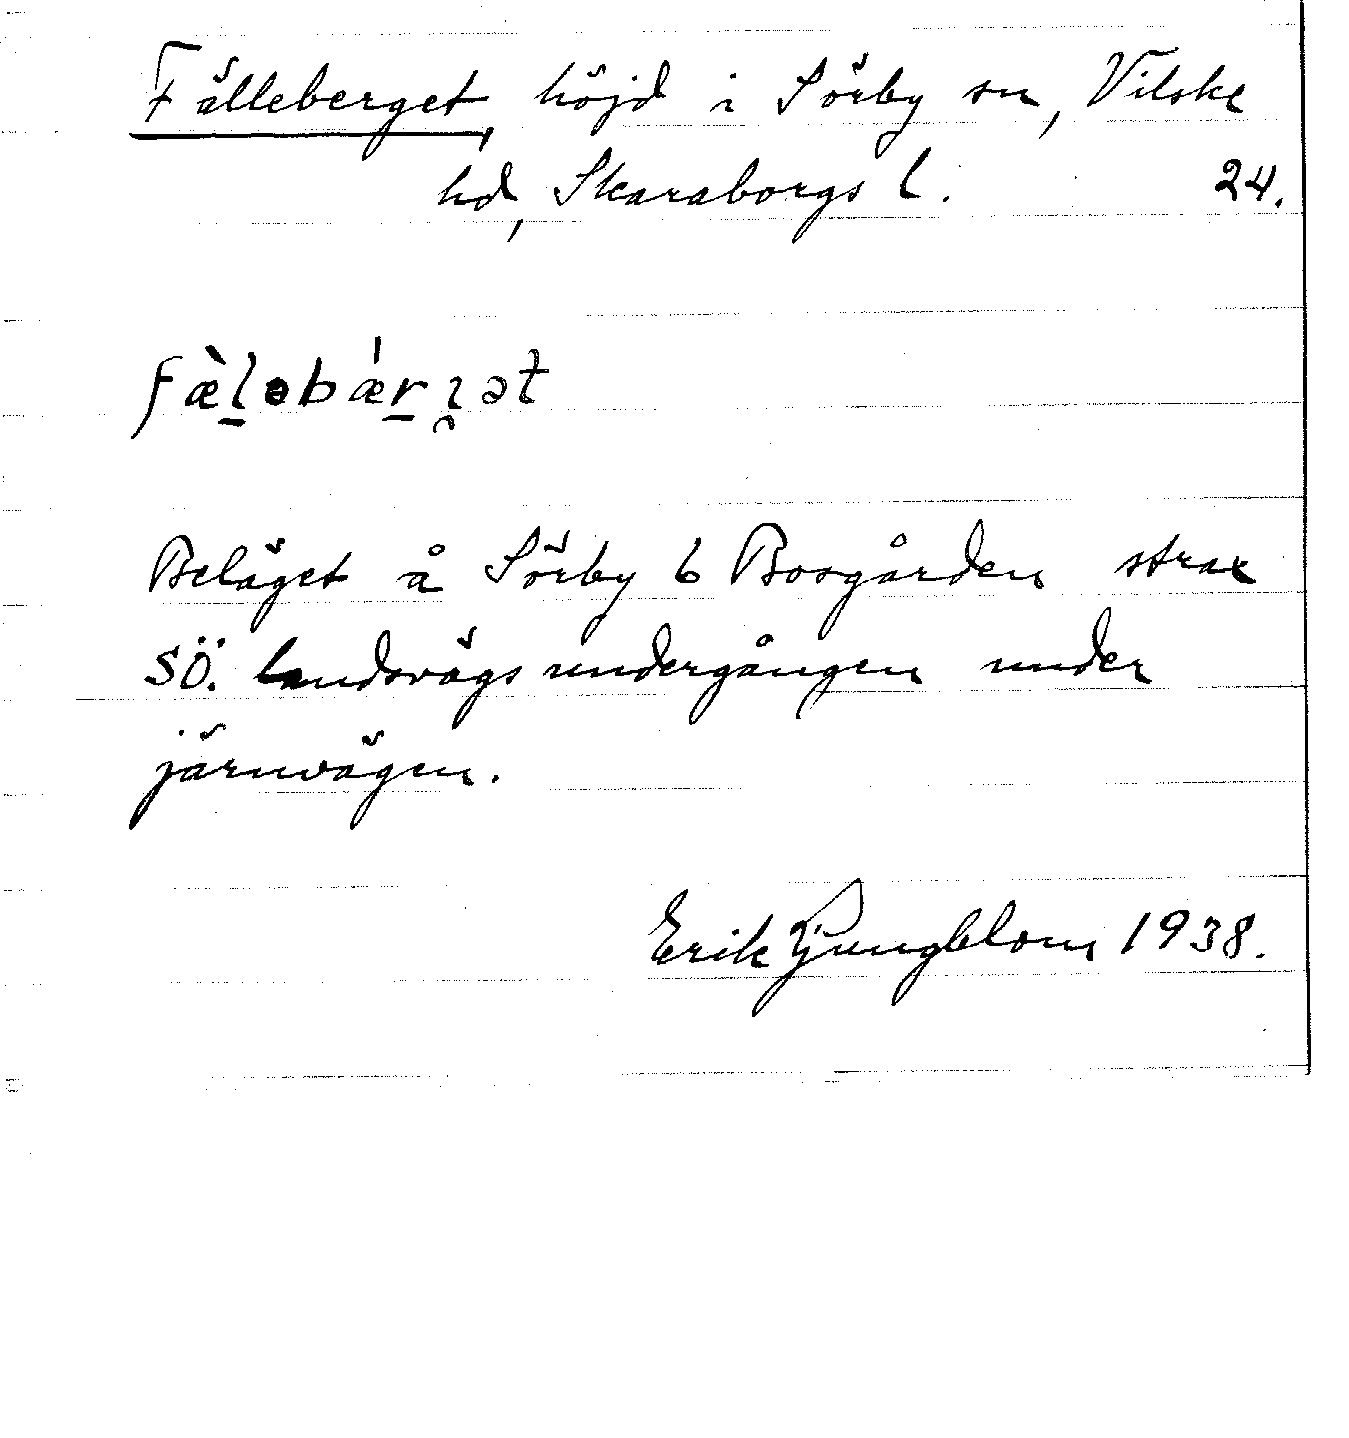 Fälleberget, höjd i Sörby sn, Vilske
hd, Skaraborgs l. 24.
fæ̀l̠əbǽr̠ʅ̯ət
Beläget å Sörby 6 Bosgården strax
SÖ. landsvägsundergången under
järnvägen.
Erik Ljungblom 1938.